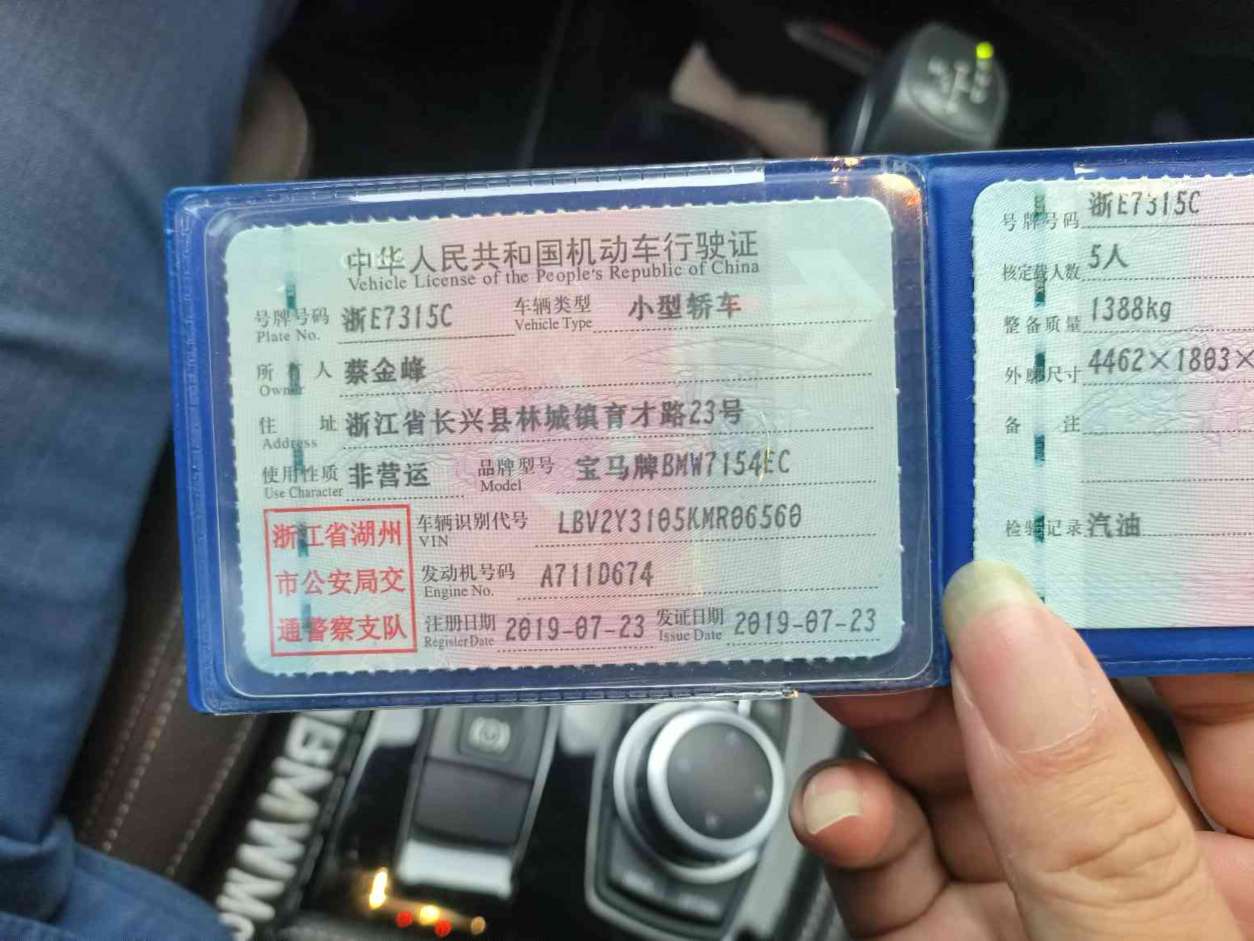 中华人民共和国机动车行驶证
Vehicle License of the People's Republic of China
号牌号码 浙E7315C 车辆类型 小型轿车
Plate No. Vehicle Type
所有人 蔡金峰
Owner
住址 浙江省长兴县林城镇育才路23号
Address
使用性质 非营运 品牌型号 宝马牌BMW7154EC
Use Character Model
浙江省湖州
市公安局交
通警察支队
车辆识别代号 LBV2Y3105KMR06560
VIN
发动机号码 A711D674
Engine No.
注册日期 2019-07-23 发证日期 2019-07-23
Register Date Issue Date
号牌号码 浙E7315C
核定载人数 5人
整备质量 1388kg
外廓尺寸 4462×1803×
备注
检验记录 汽油
BMW